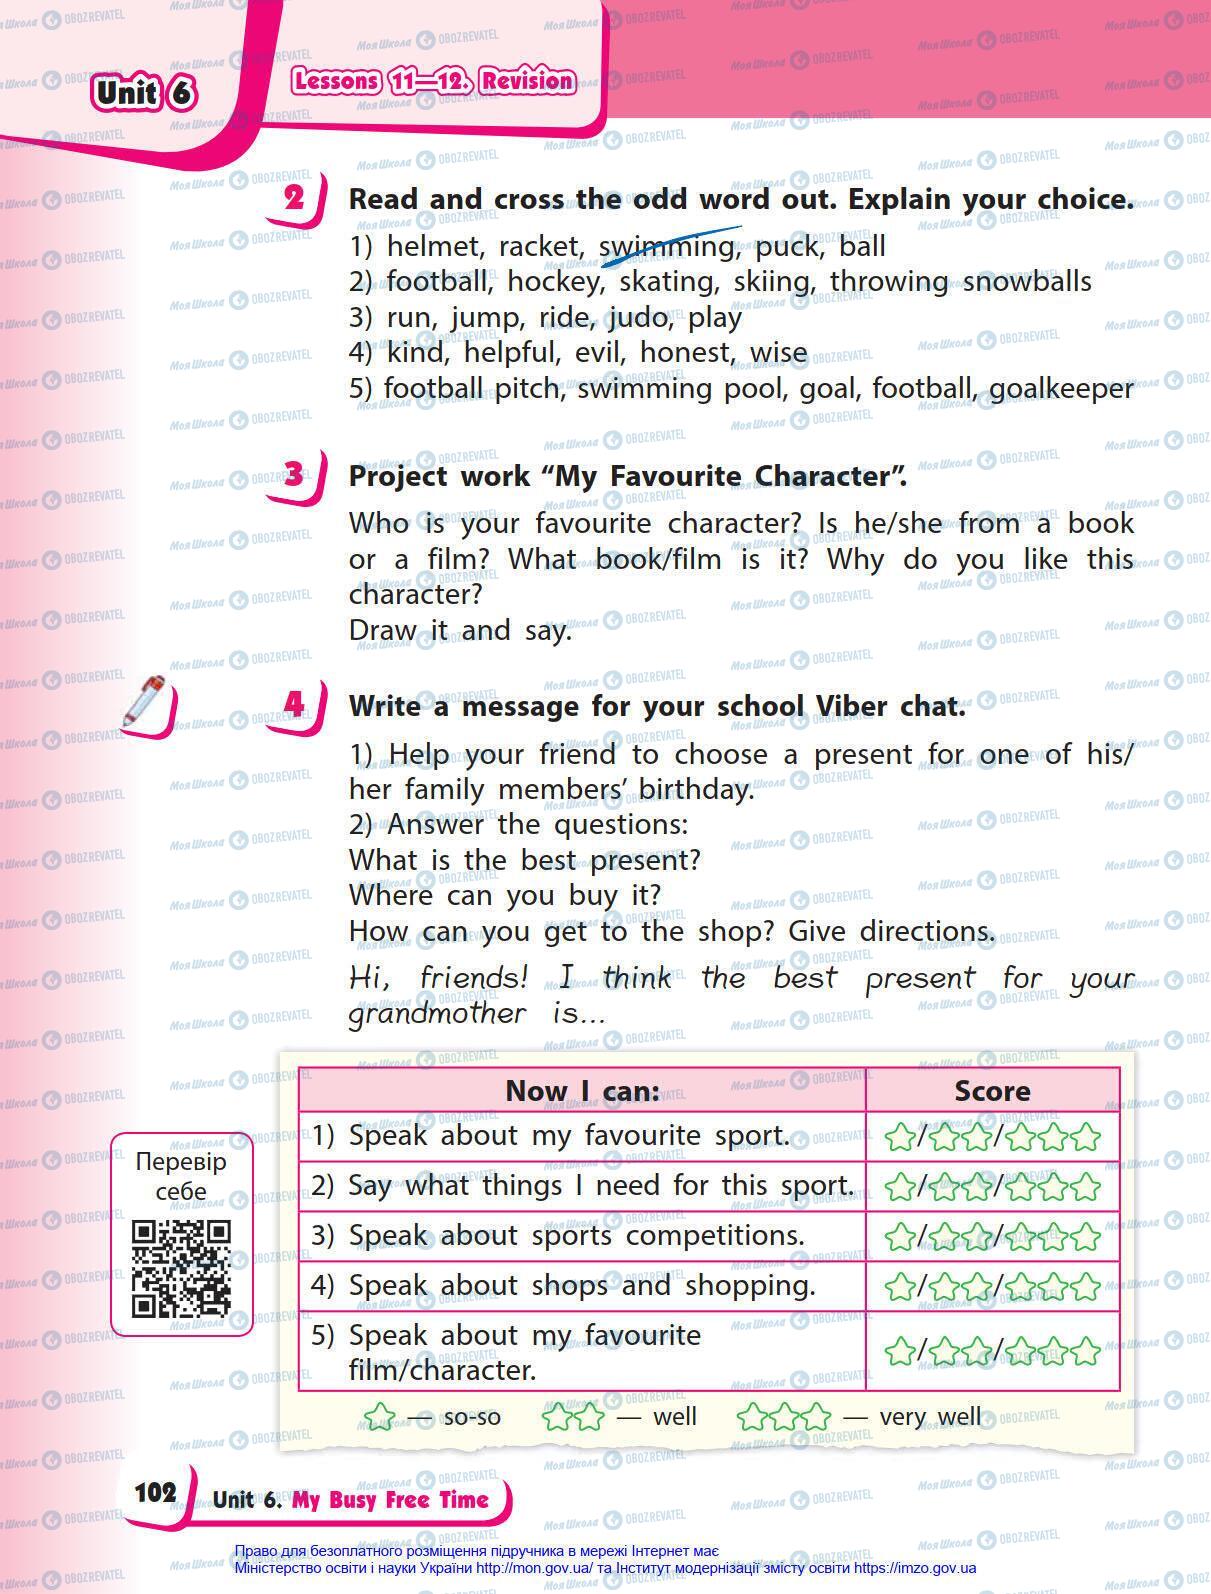 Unit 6
Lessons 11—12. Revision
2
Read and cross the odd word out. Explain your choice.
1) helmet, racket, swimming, puck, ball
2) football, hockey, skating, skiing, throwing snowballs
3) run, jump, ride, judo, play
4) kind, helpful, evil, honest, wise
5) football pitch, swimming pool, goal, football, goalkeeper
3
Project work “My Favourite Character”.
Who is your favourite character? Is he/she from a book
or a film? What book/film is it? Why do you like this
character?
Draw it and say.
4
Write a message for your school Viber chat.
1) Help your friend to choose a present for one of his/
her family members’ birthday.
2) Answer the questions:
What is the best present?
Where can you buy it?
How can you get to the shop? Give directions.
Hi, friends! I think the best present for your
grandmother is...
Now I can:
Score
1) Speak about my favourite sport.
2) Say what things I need for this sport.
3) Speak about sports competitions.
4) Speak about shops and shopping.
5) Speak about my favourite
film/character.
— so-so
— well
— very well
Перевір
себе
102
Unit 6. My Busy Free Time
Право для безоплатного розміщення підручника в мережі Інтернет має
Міністерство освіти і науки України http://mon.gov.ua/ та Інститут модернізації змісту освіти https://imzo.gov.ua
МояШкола OBOZREVATEL